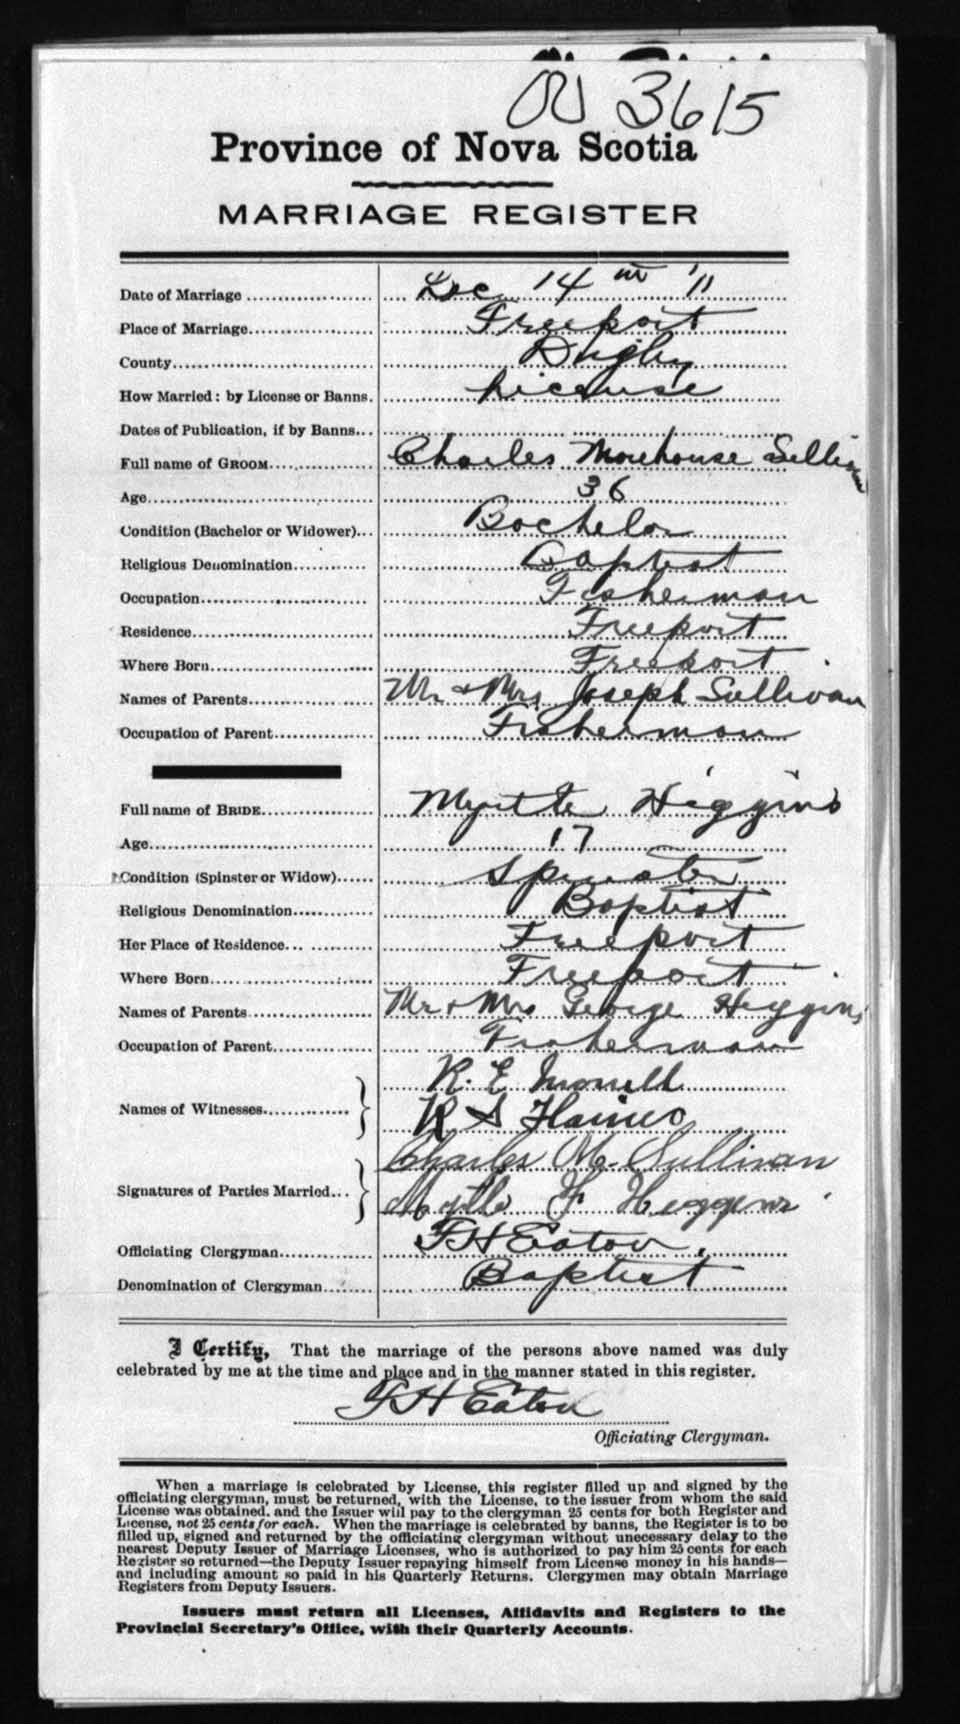 3615
Province of Nova Scotia
MARRIAGE REGISTER
Date of Marriage .................. Dec 14th '11
Place of Marriage.................. Freeport
County.................. Digby
How Married: by License or Banns. License
Dates of Publication, if by Banns...
Full name of GROOM.................. Charles Morehouse Sullivan
Age.................. 36
Condition (Bachelor or Widower)... Bachelor
Religious Denomination........... Baptist
Occupation.................. Fisherman
Residence.................. Freeport
Where Born.................. Freeport
Names of Parents.................. Mr & Mrs Joseph Sullivan
Occupation of Parent.................. Fisherman
Full name of BRIDE.................. Myrtle Higgins
Age.................. 17
Condition (Spinster or Widow)...... Spinster
Religious Denomination............ Baptist
Her Place of Residence... ........... Freeport
Where Born.................. Freeport
Names of Parents.................. Mr & Mrs George Higgins
Occupation of Parent.................. Fisherman
Names of Witnesses.............. R. E. Morrell
R S Haines
Signatures of Parties Married... Charles M. Sullivan
Myrtle F Higgins
Officiating Clergyman.............. F H Eaton
Denomination of Clergyman......... Baptist
I Certify, That the marriage of the persons above named was duly
celebrated by me at the time and place and in the manner stated in this register.
F H Eaton
Officiating Clergyman.
When a marriage is celebrated by License, this register filled up and signed by the
officiating clergyman, must be returned, with the License, to the issuer from whom the said
License was obtained, and the Issuer will pay to the clergyman 25 cents for both Register and
License, not 25 cents for each. When the marriage is celebrated by banns, the Register is to be
filled up, signed and returned by the officiating clergyman without unecessary delay to the
nearest Deputy Issuer of Marriage Licenses, who is authorized to pay him 25 cents for each
Register so returned—the Deputy Issuer repaying himself from License money in his hands—
and including amount so paid in his Quarterly Returns. Clergymen may obtain Marriage
Registers from Deputy Issuers.
Issuers must return all Licenses, Affidavits and Registers to the
Provincial Secretary's Office, with their Quarterly Accounts.